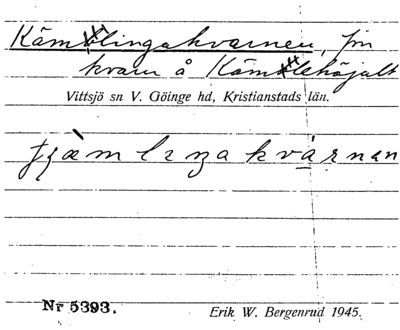 Kämlingakvarnen, fm
kvarn å Kämlehöjalt
Vittsjö sn V. Göinge hd, Kristianstads län.
Nr 5393.
Erik W. Bergenrud 1945.